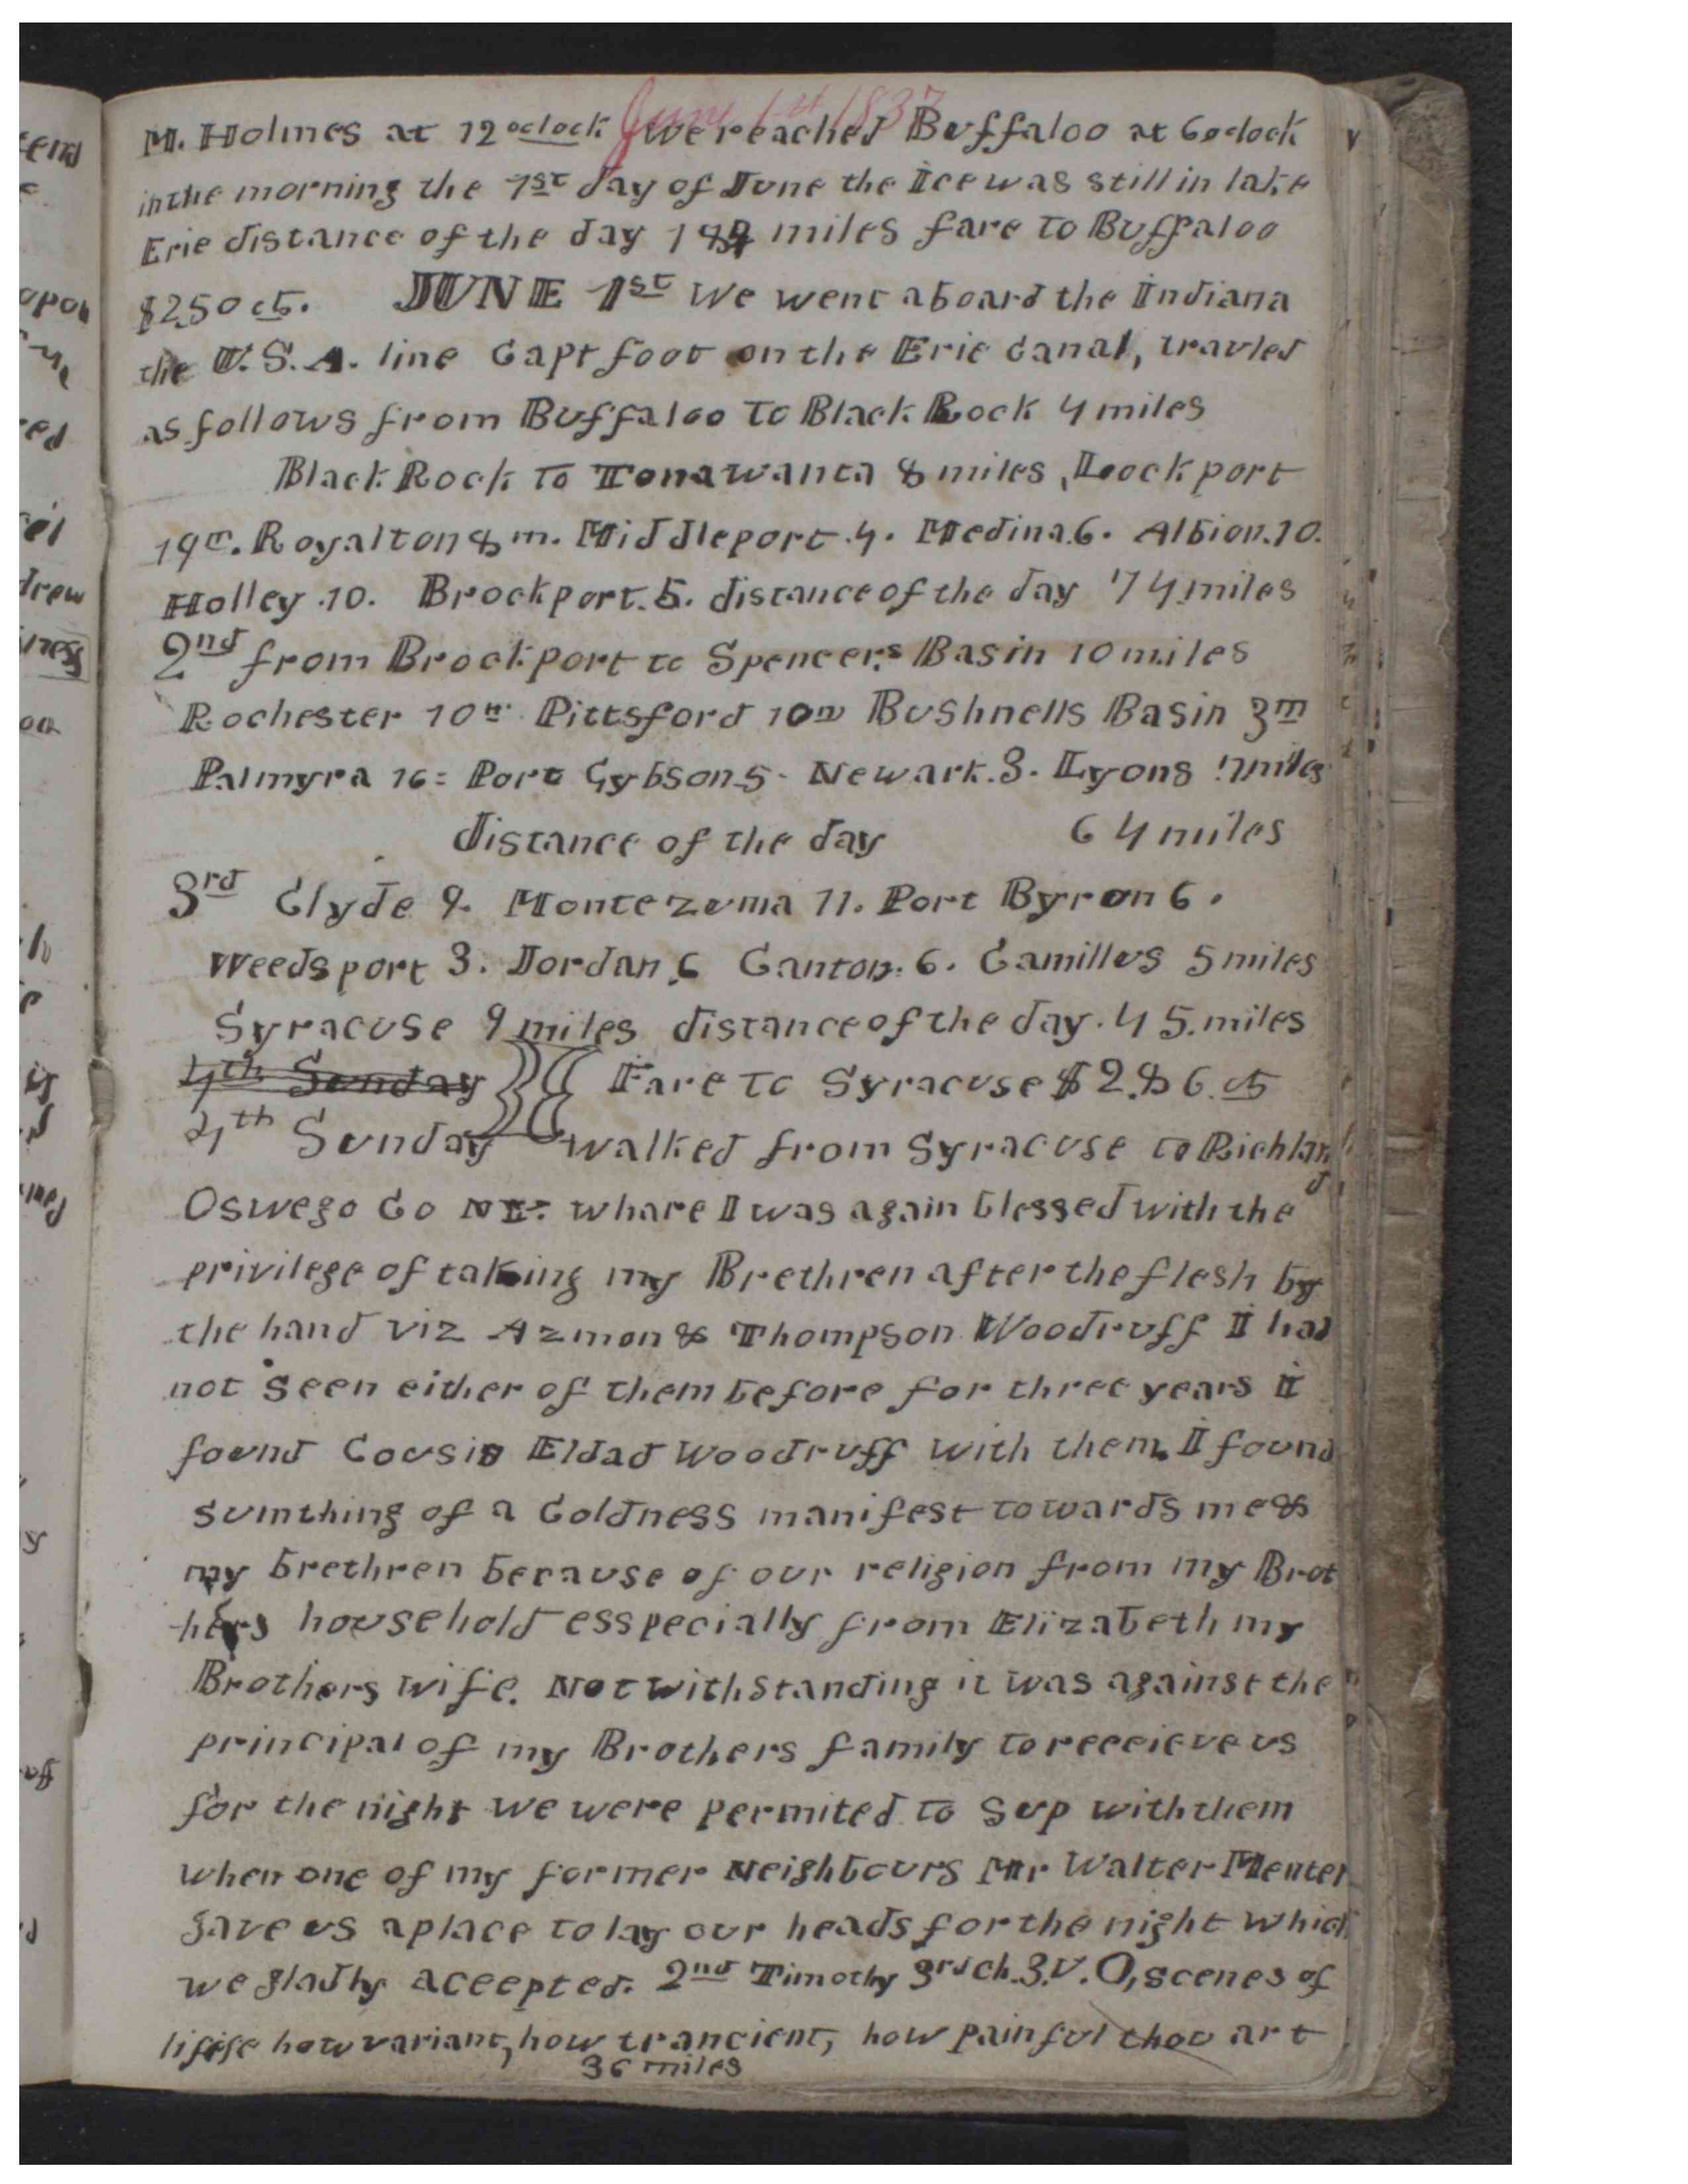 June 1st 1837
M. Holmes at 12 oclock we reached Buffaloo at 6 oclock
in the morning the 1st day of June the Ice was still in lake
Erie distance of the day miles fare to Buffaloo
$2.50 cts. JUNE 1st We went aboard the Indiana
the U.S.A. line Capt foot on the Erie Canal, travled
as follows from Buffaloo to Black Rock 4 miles
Black Rock to Tonawanta 8 miles, Lockport
19m. Royalton 8 m. Middleport. 4. Medina. 6. Albion. 10.
Holley. 10. Brockport. 5. distance of the day 74 miles
2nd from Brockport to Spencers Basin 10 miles
Rochester 10m. Pittsford 10m Bushnells Basin 3m
Palmyra 16= Port Gybson. 5. Newark. 3. Lyons 7 miles
distance of the day 64 miles
3rd Clyde 9. Montezuma 11. Port Byron 6.
Weedsport 3. Jordan, 6 Canton. 6. Camillus 5 miles
Syracuse 9 miles distance of the day. 45. miles
4th Sunday Fare to Syracuse $2.86. cts
4th Sunday walked from Syracuse to Richland
Oswego Co NY. whare I was again blessed with the
privilege of taking my Brethren after the flesh by
the hand viz Azmon & Thompson Woodruff I had
not seen either of them before for three years I
found Cousin Eldad Woodruff with them. I found
sumthing of a Coldness manifest towards me &
my brethren because of our religion from my Brot
hers household esspecially from Elizabeth my
Brothers wife. Notwithstanding it was against the
principal of my Brothers family to receieve us
for the night we were permited to sup with them
when one of my former Neighbours Mr Walter
gave us a place to lay our heads for the night which
we gladly accepted. 2nd Timothy 3rd ch. 3. v. O, scenes of
life how variant, how trancient, how painful thou art
36 miles